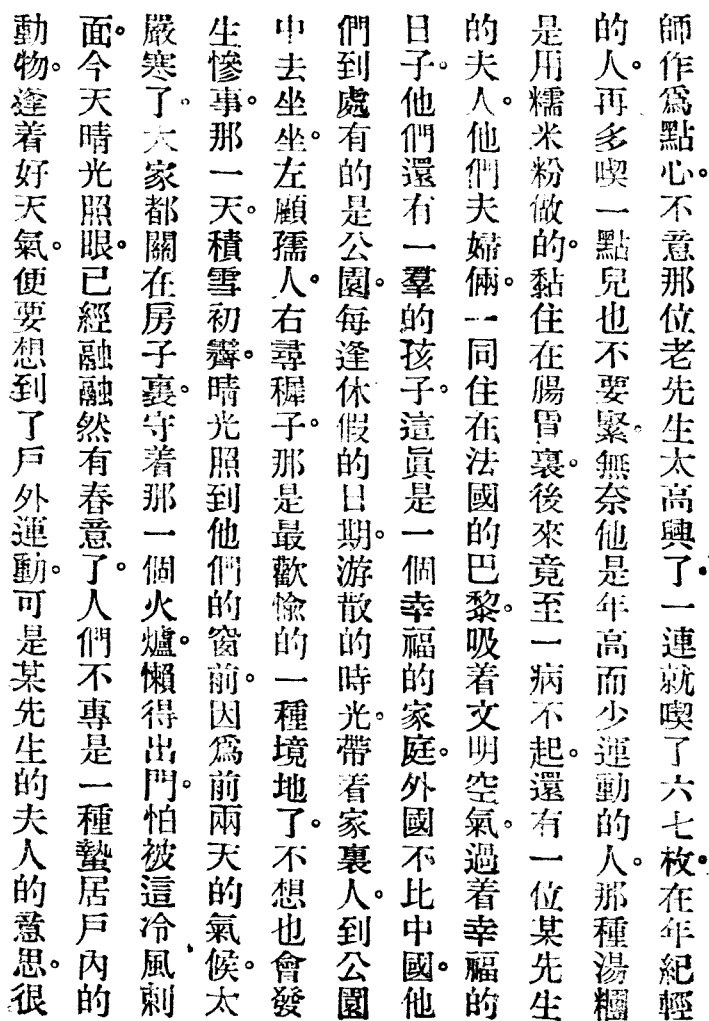 師作爲點心。不意那位老先生太高興了。一連就喫了六七枚。在年紀輕
的人。再多喫一點兒也不要緊。無奈他是年高而少運動的人。那種湯糰
是用糯米粉做的。黏住在腸胃裏。後來竟至一病不起。還有一位某先生
的夫人。他們夫婦倆。一同住在法國的巴黎。吸着文明空氣。過着幸福的
日子。他們還有一羣的孩子。這眞是一個幸福的家庭。外國不比中國。他
們到處有的是公園。每逢休假的日期。游散的時光。帶着家裏人。到公園
中去坐坐。左顧孺人。右尋穉子。那是最歡愉的一種境地了。不想也會發
生慘事。那一天。積雪初霽。晴光照到他們的窗前。因爲前兩天的氣候。太
嚴寒了。大家都關在房子裏。守着那一個火爐。懶得出門。怕被這冷風刺
面。今天晴光照眼。已經融融然有春意了。人們不專是一種蟄居戶內的
動物。逢着好天氣。便要想到了戶外運動。可是某先生的夫人的意思。很